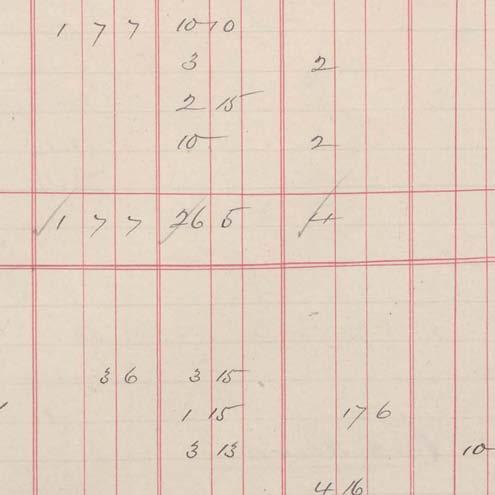 1 7 7 10 10
3 2
2 15
10 2
1 7 7 26 5 4
3 6 3 15
1 15 17 6
3 13 10
4 16